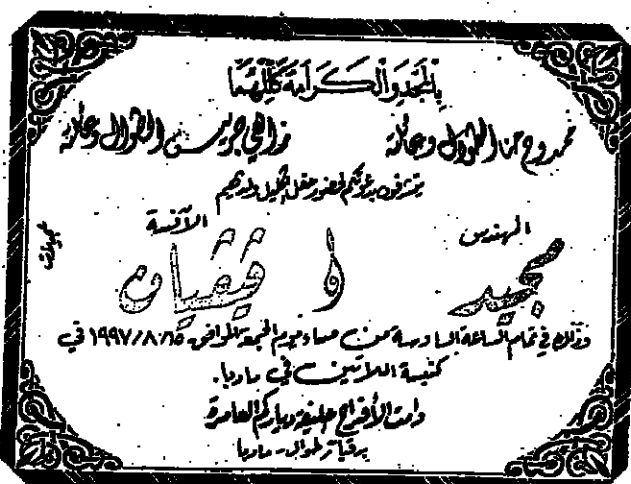 بالمجد والكرامة كللهما
ممدوح حنا الطوال وعائلته
زاهي جريس الطوال وعائلته
يتشرفون بدعوتكم لحضور حفل إكليل ولديهم
المهندس
الآنسة
مجيد
و
فيفيان
وذلك في تمام الساعة السادسة من مساء يوم الجمعة الموافق ١٩٩٧/٨/١٥ في
كنيسة اللاتين في مادبا.
دامت الأفراح حليفة دياركم العامرة
برقياً طوال - مادبا